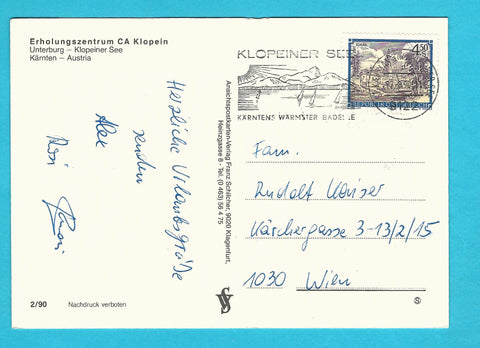 Erholungszentrum CA Klopein
Unterburg – Klopeiner See
Kärnten – Austria
Herzliche Urlaubsgrüße
senden
Alex
2/90 Nachdruck verboten
Ansichtspostkarten-Verlag Franz Schilcher, 9020 Klagenfurt,
Heinzgasse 8 - Tel. (0 463) 56 4 75
KLOPEINER SEE
KÄRNTENS WÄRMSTER BADESEE
4.50
REPUBLIK ÖSTERREICH
Fam.
Rudolf Kaiser
Kärchergasse 3-13/2/15
1030 Wien